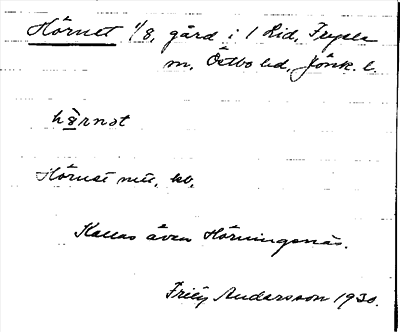 Hörnet 1/8, gård i 1 Rid, Fryele
m, Östbo hd, Jönk. l.
hö̀rnət
Hörnet mtl. kb.
Kallas även Hörningsnäs.
Frity Andersson 1930.